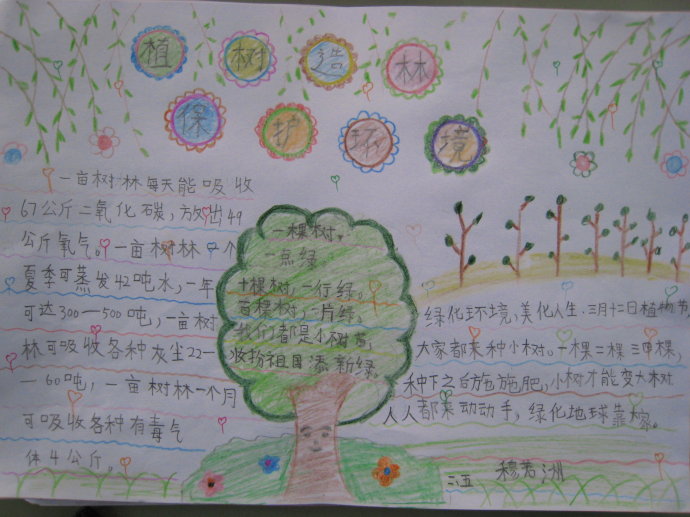 植树造林
保护环境
一亩树林每天能吸收
67公斤二氧化碳,放出49
公斤氧气。一亩树林一个
夏季可蒸发42吨水,一年
可达300—500吨,一亩树
林可吸收各种灰尘22—
—60吨,一亩树林一个月
可吸收各种有毒气
体4公斤。
一棵树,
一点绿
十棵树,一行绿。
百棵树,一片绿。
我们都是小树苗,
妆扮祖国添新绿。
绿化环境,美化人生.三月十二日植物节,
大家都来种小树。一棵二棵三四棵,
种下之后施施肥,小树才能变大树
人人都来动动手,绿化地球靠大家。
二.五 穆若洲